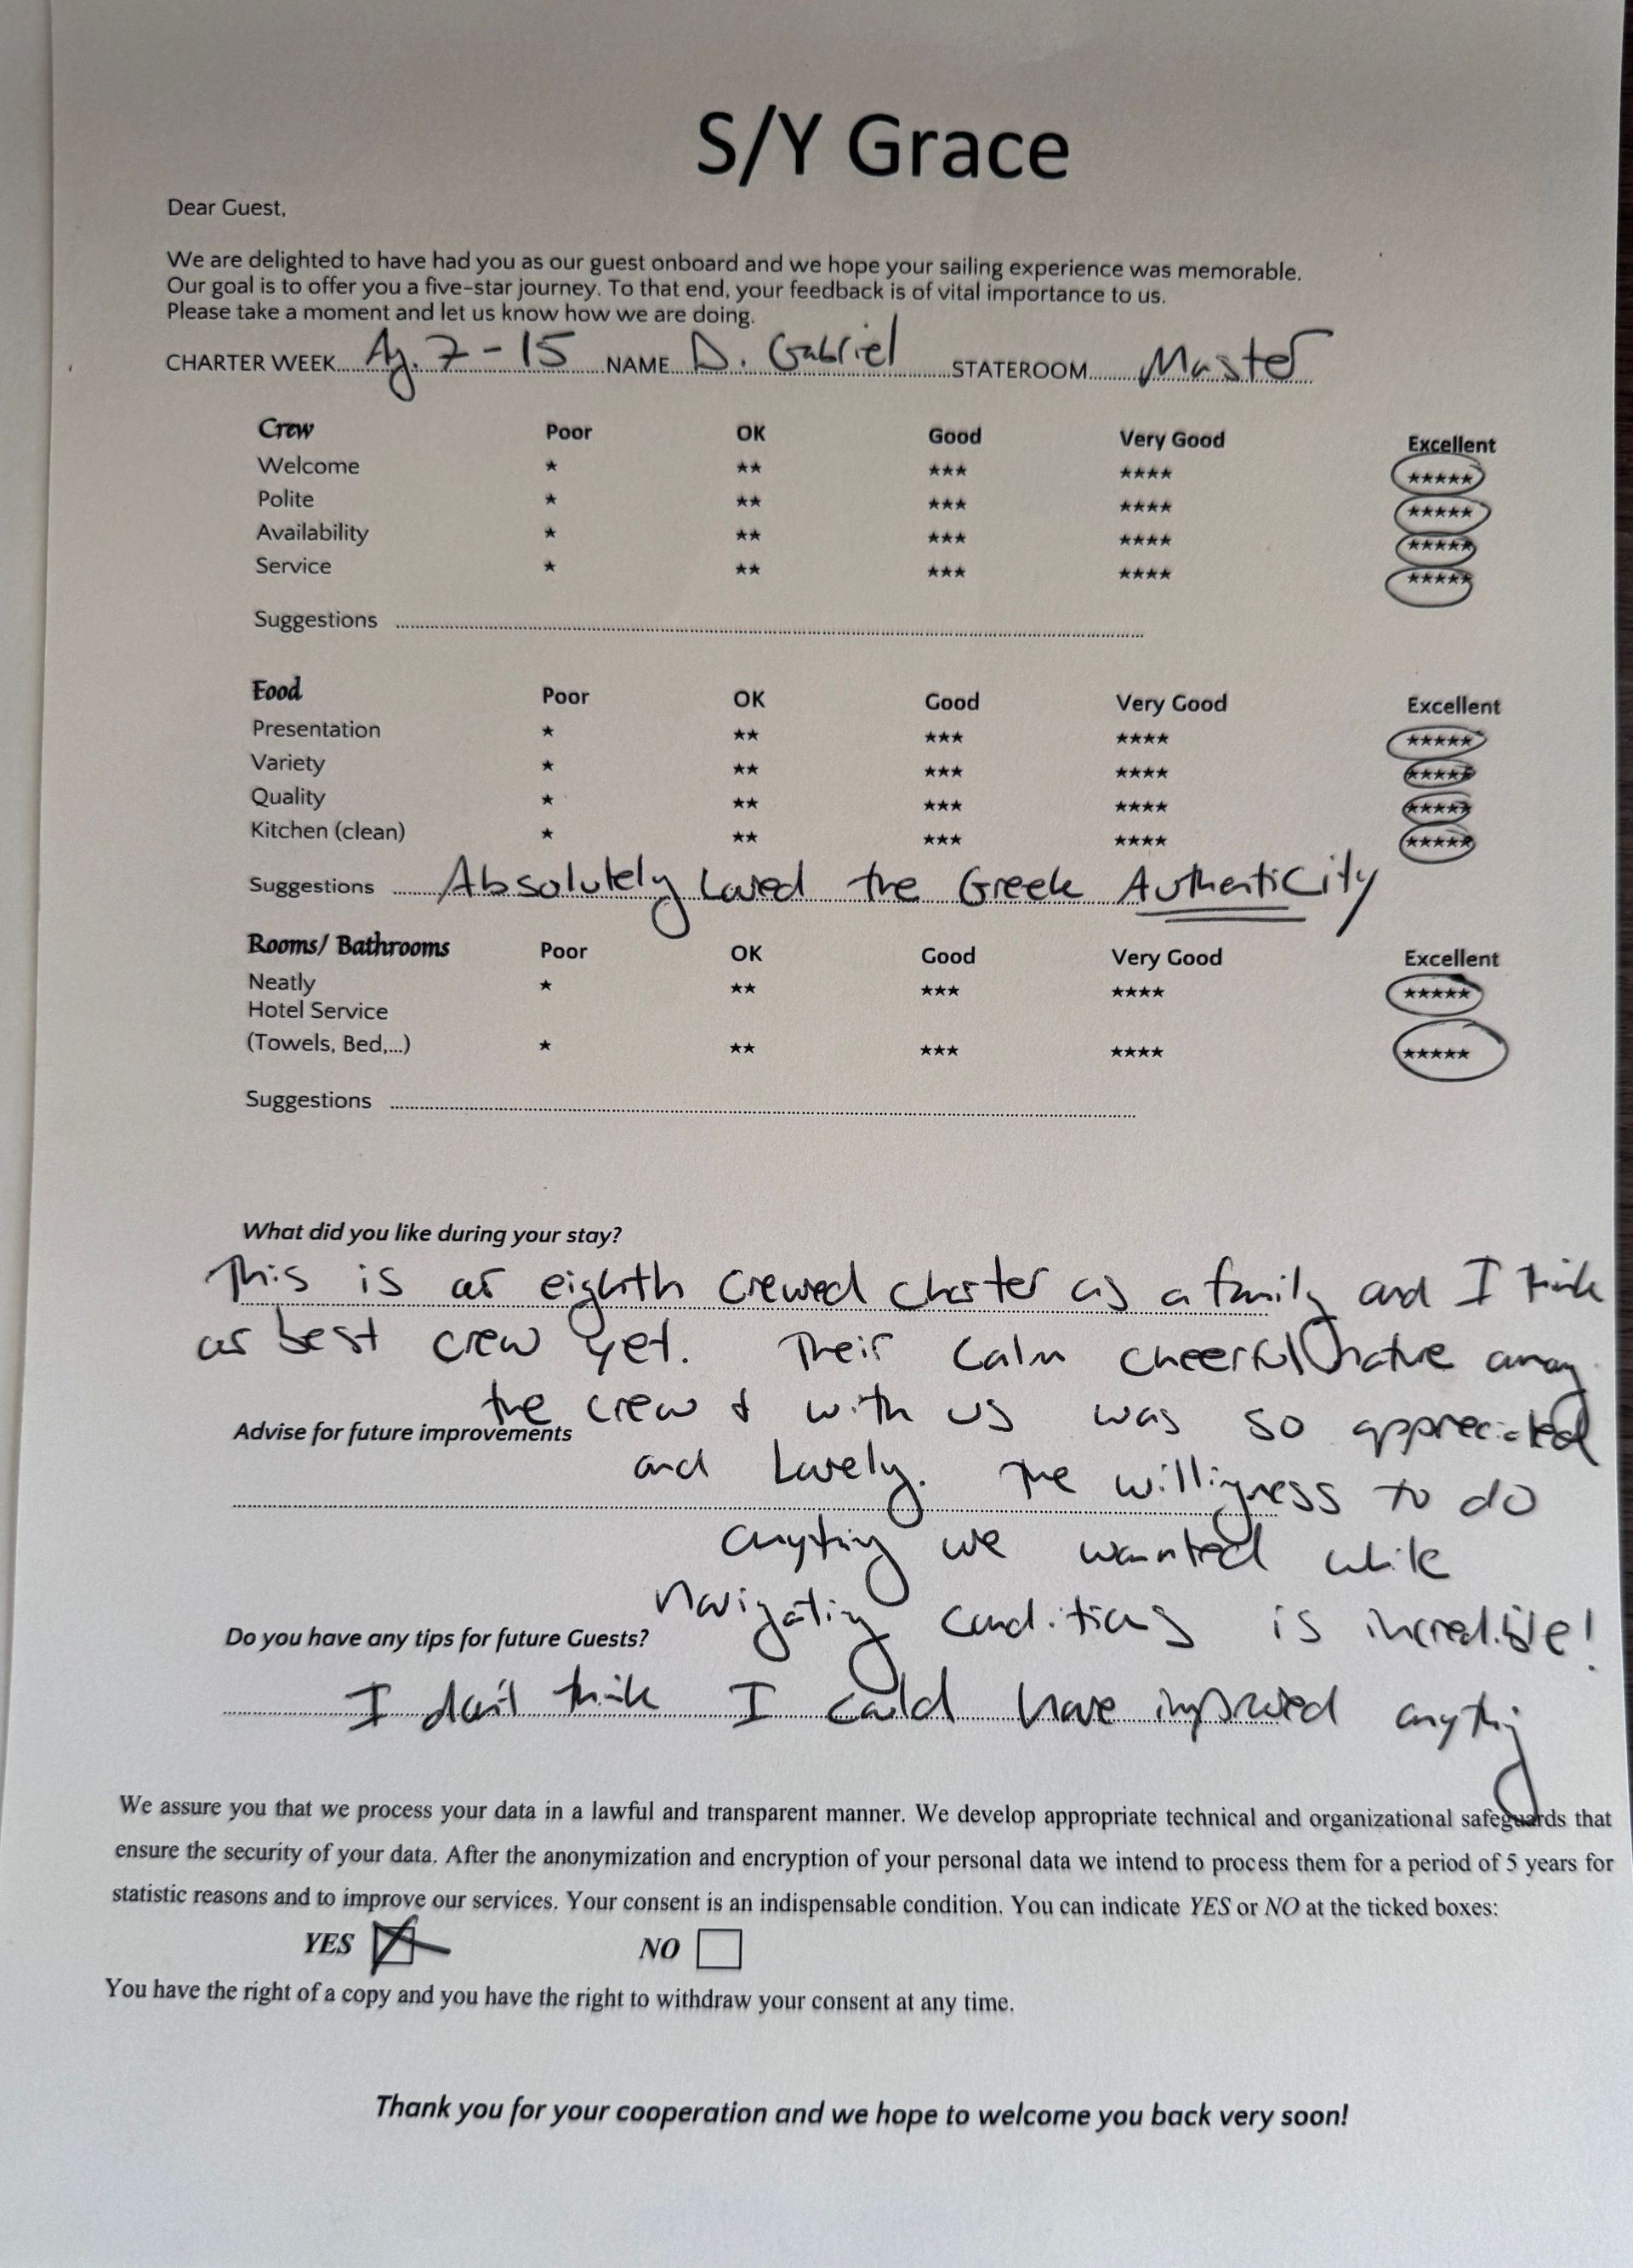 S/Y Grace
Dear Guest,
We are delighted to have had you as our guest onboard and we hope your sailing experience was memorable.
Our goal is to offer you a five-star journey. To that end, your feedback is of vital importance to us.
Please take a moment and let us know how we are doing.
CHARTER WEEK Ag. 7 - 15 NAME D. Gabriel STATEROOM Master
Crew Poor OK Good Very Good Excellent
Welcome ★ ★★ ★★★ ★★★★ ★★★★★
Polite ★ ★★ ★★★ ★★★★ ★★★★★
Availability ★ ★★ ★★★ ★★★★ ★★★★★
Service ★ ★★ ★★★ ★★★★ ★★★★★
Suggestions
Food Poor OK Good Very Good Excellent
Presentation ★ ★★ ★★★ ★★★★ ★★★★★
Variety ★ ★★ ★★★ ★★★★ ★★★★★
Quality ★ ★★ ★★★ ★★★★ ★★★★★
Kitchen (clean) ★ ★★ ★★★ ★★★★ ★★★★★
Suggestions Absolutely Loved the Greek Authenticity
Rooms/ Bathrooms Poor OK Good Very Good Excellent
Neatly ★ ★★ ★★★ ★★★★ ★★★★★
Hotel Service
(Towels, Bed,...) ★ ★★ ★★★ ★★★★ ★★★★★
Suggestions
What did you like during your stay?
This is our eighth crewed charter as a family and I think
our best crew yet. Their calm cheerful nature among
the crew & with us was so appreciated
Advise for future improvements
and Lovely. The willigness to do
anything we wanted while
navigating conditions is incredible!
Do you have any tips for future Guests?
I don't think I could have improved anything
We assure you that we process your data in a lawful and transparent manner. We develop appropriate technical and organizational safeguards that
ensure the security of your data. After the anonymization and encryption of your personal data we intend to process them for a period of 5 years for
statistic reasons and to improve our services. Your consent is an indispensable condition. You can indicate YES or NO at the ticked boxes:
YES NO
You have the right of a copy and you have the right to withdraw your consent at any time.
Thank you for your cooperation and we hope to welcome you back very soon!